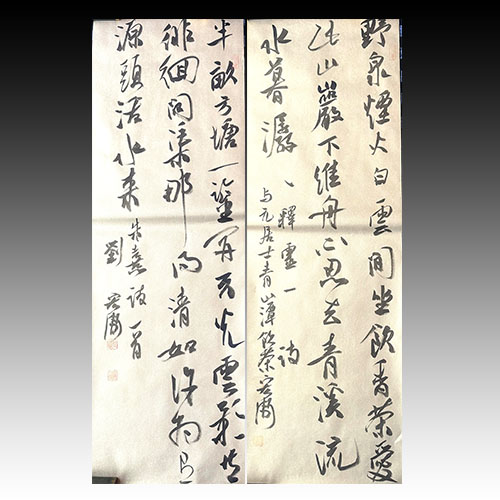 野泉煙火白雲間坐飲香茶愛
此山巖下維舟不忍去青溪流
水暮潺、釋靈一詩
与元居士青山潭飲茶
半畝方塘一鑒開天光雲影共
徘徊問渠那得清如許為有
源頭活水来 朱熹詩一首
劉